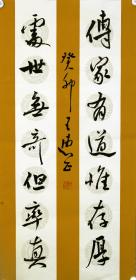 傳家有道惟存厚
處世無奇但率真
癸卯